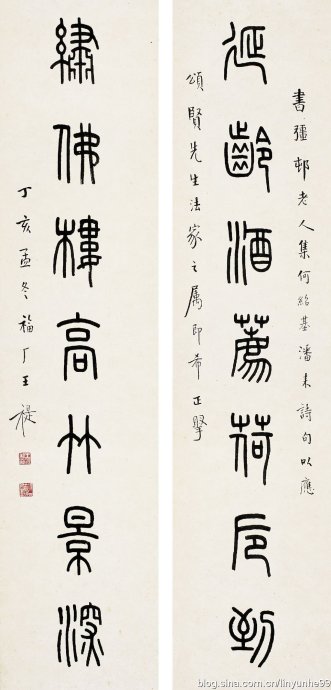 書彊邨老人集何紹基潘耒詩句以應
延齡酒薦荷卮到
頌賢先生法家之属即希正
繡佛樓高竹景深
丁亥孟冬福厂王禔
blog.sina.com.cn/linyunhe99